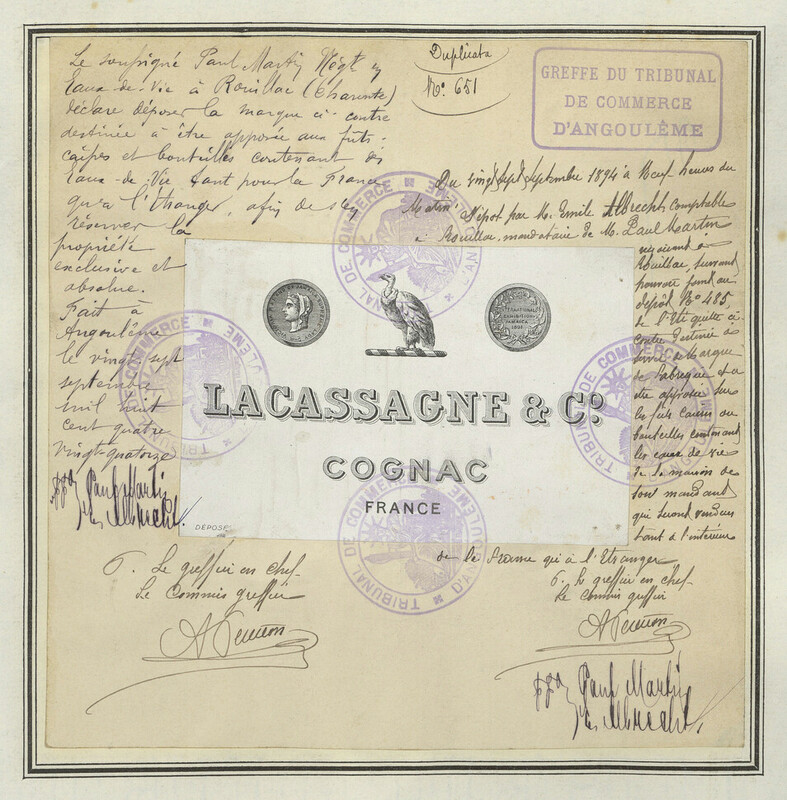 Le soussigné Paul Martin Négt en
Eaux-de-Vie à Rouillac (Charente)
déclare déposer la marque ci-contre
destinée à être apposée aux fûts
caisses et bouteilles contenant des
Eaux-de-Vie tant pour la France
qu'à l'Etranger, afin de s'en
réserver la
propriété
exclusive et
absolue.
Fait à
Angoulême
le vingt sept
septembre
mil huit
cent quatre
vingt-quatorze
ppon Paul Martin
Albrecht
Duplicata
No. 651
GREFFE DU TRIBUNAL
DE COMMERCE
D'ANGOULÊME
Du vingt sept septembre 1894 à Neuf heures du
Matin. Dépôt par M. Emile Albrecht comptable
à Rouillac, mandataire de M. Paul Martin
négociant à
Rouillac, suivant
pouvoir joint au
dépôt No 485,
de l'Etiquette ci-
contre destinée à
servir de Marque
de fabrique et à
être apposée sur
les fûts caisses ou
bouteilles contenant
les eaux de vie
de la maison de
son mandant
qui seront vendues
tant à l'intérieur
de la France qu'à l'Etranger
TRIBUNAL DE COMMERCE D'ANGOULÊME
TRIBUNAL DE COMMERCE D'ANGOULÊME
TRIBUNAL DE COMMERCE D'ANGOULÊME
TRIBUNAL DE COMMERCE D'ANGOULÊME
INTERNATIONAL
EXHIBITION
JAMAICA
1891
LACASSAGNE & Co.
COGNAC
FRANCE
DÉPOSÉ
P. Le greffier en chef
Le Commis greffier
P. le greffier en chef
Le commis greffier
ppon Paul Martin
Albrecht